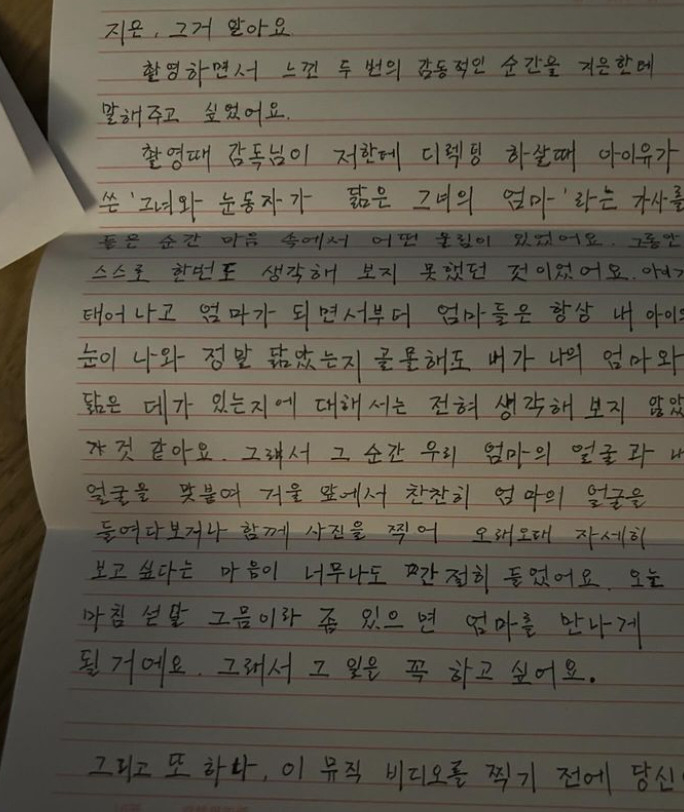 지은, 그거 알아요
촬영하면서 느낀 두 번의 감동적인 순간을 지은한테
말해주고 싶었어요.
촬영때 감독님이 저한테 디렉팅 하실때 아이유가
쓴 '그녀와 눈동자가 닮은 그녀의 엄마'라는 가사를
들은 순간 마음 속에서 어떤 울림이 있었어요. 그동안
스스로 한번도 생각해 보지 못했던 것이었어요. 아이가
태어나고 엄마가 되면서부터 엄마들은 항상 내 아이의
눈이 나와 정말 닮았는지 골몰해도 내가 나의 엄마와
닮은 데가 있는지에 대해서는 전혀 생각해 보지 않았
것 같아요. 그래서 그 순간 우리 엄마의 얼굴과 내
얼굴을 맞붙여 거울 앞에서 찬찬히 엄마의 얼굴을
들여다보거나 함께 사진을 찍어 오래오래 자세히
보고 싶다는 마음이 너무나도 간절히 들었어요. 오늘
마침 섣달 그믐이라 좀 있으면 엄마를 만나게
될 거에요. 그래서 그 일을 꼭 하고 싶어요.
그리고 또 하나, 이 뮤직 비디오를 찍기 전에 당신